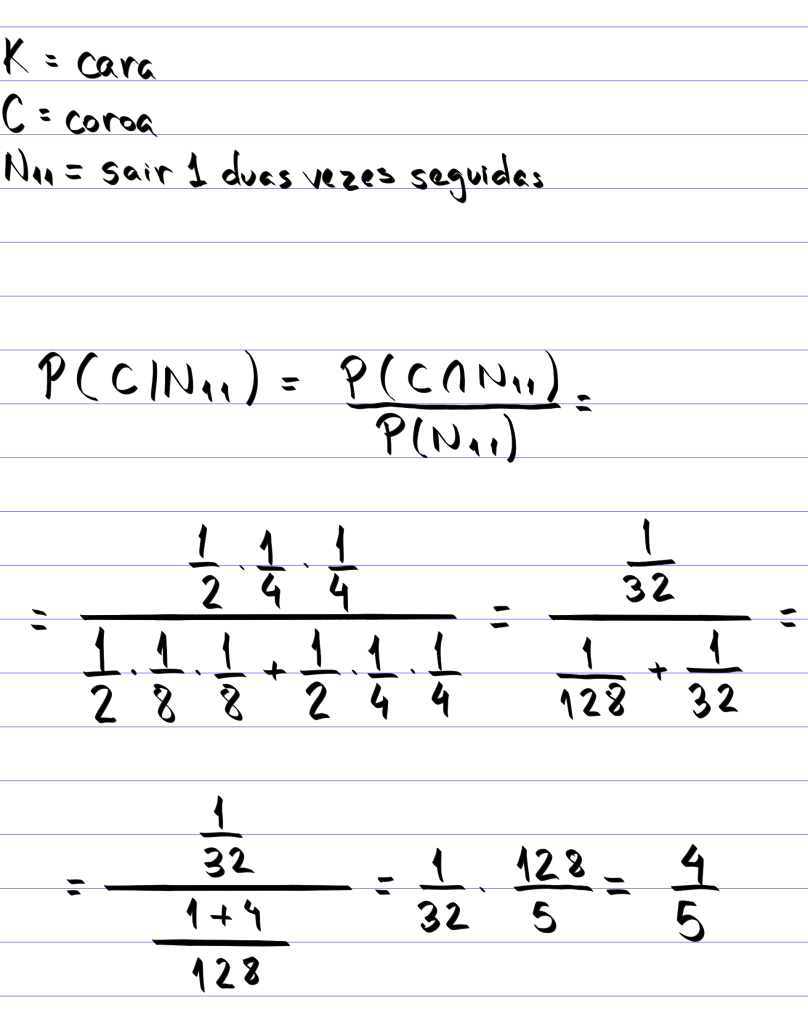 K = cara
C = coroa
N₁₁ = sair 1 duas vezes seguidas
P(C|N₁₁) = P(C∩N₁₁) / P(N₁₁) =
= (1/2 · 1/4 · 1/4) / (1/2 · 1/8 · 1/8 + 1/2 · 1/4 · 1/4) = (1/32) / (1/128 + 1/32) =
= (1/32) / ((1+4)/128) = 1/32 · 128/5 = 4/5